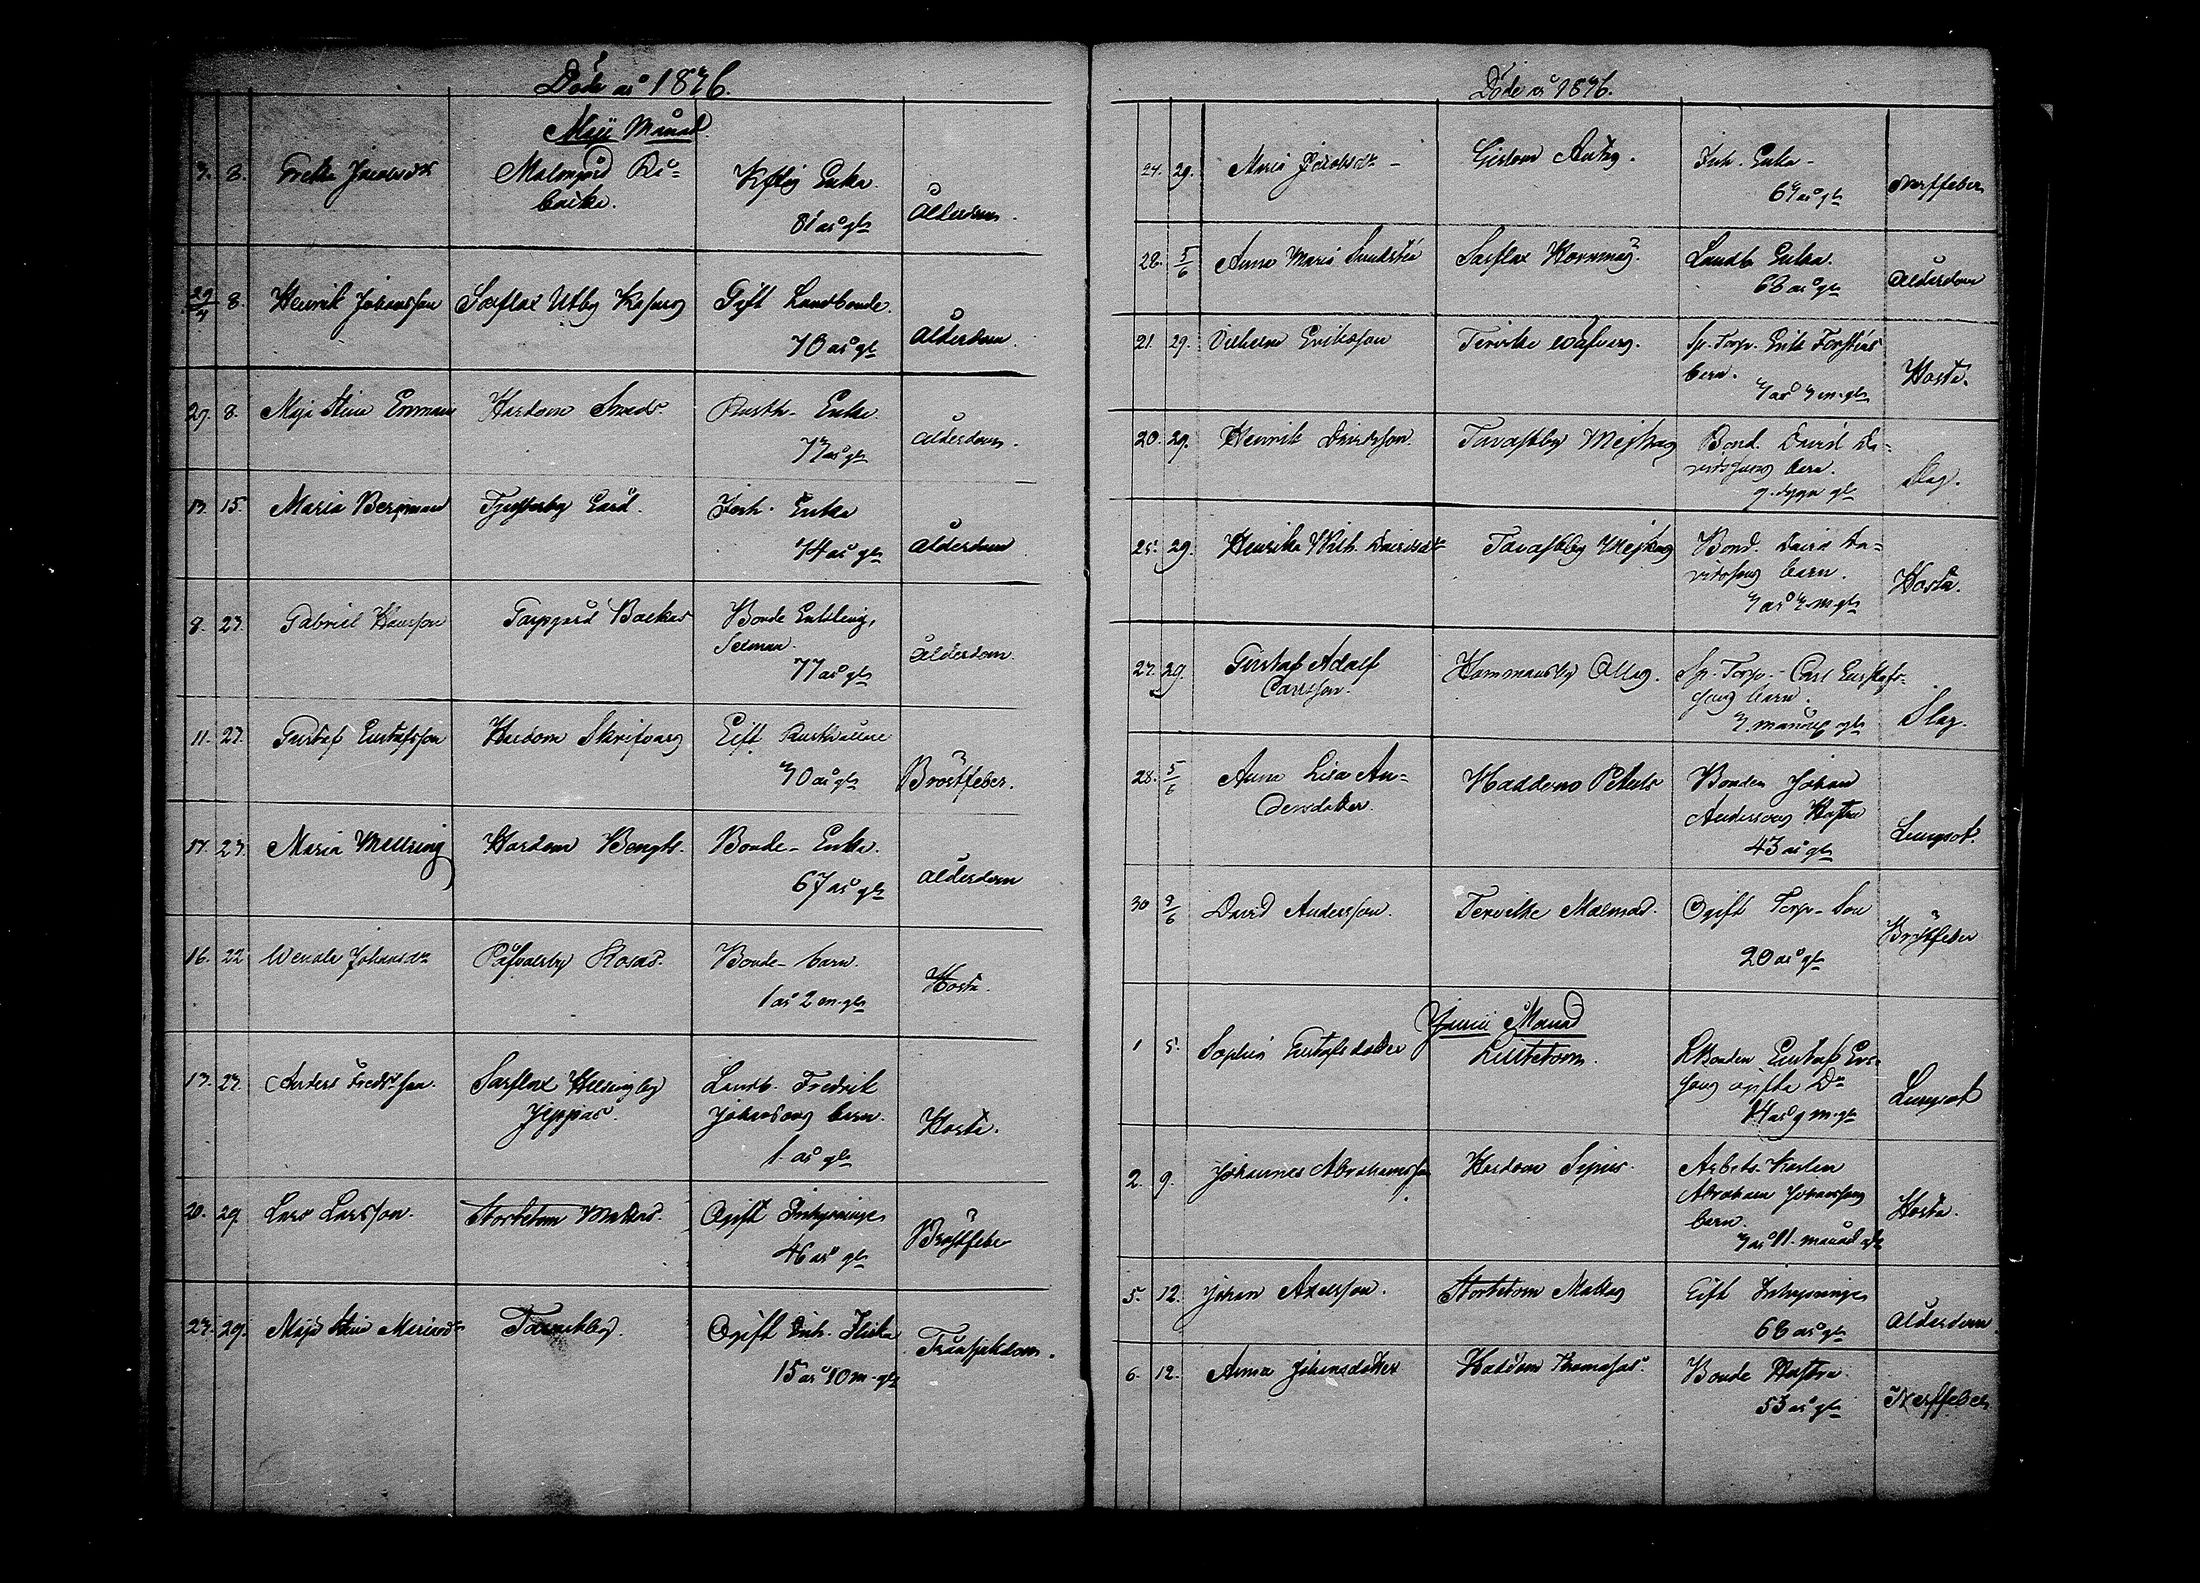 Döde år 1876.
Maji Månad.
3. 8. Greta Jacobsdr Malmgård Rå-
backa. Kyrklig Enka
81 år gl Ålderdom.
29/4 8. Henrik Johansson Sarflax Utby Gift Landbonde.
70 år gl Ålderdom.
29. 8. Maja Stina Emman Hardom Smeds. Rusth. Enka
77 år gl Ålderdom.
13. 15. Maria Bergman Tjusterby Gård. Inh. Enka
74 år gl Ålderdom
8. 23. Gabriel Hansson Torpgård Backas Bonde Enkling,
77 år gl Ålderdom.
11. 23. Gustaf Gustafsson Hardom Skrifvars Gift
70 år gl Bröstfeber.
17. 23. Maria Mellring Hardom Bengts. Bonde-Enka.
67 år gl Ålderdom
16. 22 Wendla Johansdr Påfvalsby Rosas. Bonde-barn.
1 år 2 m. gl Hosta.
13. 23. Anders Fredrsson. Sarflax Hellingby
Jeppas. Landb. Fredrik
Johanssons barn.
1 år gl Hosta.
20. 29. Lars Larsson. Storbetom Mattas. Ogift Inhysinge
46 år gl Bröstfeber
23. 29. Maja Stina Tavastby. Ogift Inh. Flicka
15 år 10 m. gl Trånsjukdom.
Döde år 1876.
24. 29. Maria Jacobsdr Gislom Anders. Inh. Enka
67 år gl Nerffeber
28. 5/6 Anna Maria Sundsten Sarflax Landb. Enka.
68 år gl Ålderdom
21. 29. Vilhelm Eriksson Tervike Sp. Torp. Erik Forsténs
barn.
7 år 7 m. gl Hosta.
20. 29. Henrik Davidsson. Tavastby Bond. David Da-
vidssons barn.
9 dygn gl Slag.
25. 29. Henrika Wilh. Davidsdr Tavastby Bond. David Da-
vidssons barn.
7 år 7 m. gl Hosta.
27. 29. Gustaf Adolf
Carlsson. Hommansby Ollas. Sp. Torp. Carl Gustafs-
sons barn.
7 månad gl Slag.
28. 5/6 Anna Lisa An-
dersdotter. Haddom Peters Bonden Johan
Anderssons Hustru
43 år gl Lungsot.
30 9/6 David Andersson. Tervike Malmas. Ogift Torp-Son
20 år gl Bröstfeber
Junii Månad
1 5. Sophia Gustafsdotter Lillebom. LBonden Gustaf Gus-
sons ogifta Dr
14 år 9 m. gl Lungsot
2. 9. Johannes Abrahamsson Hardom Sipars. Arbets-Karlen
Abraham Johanssons
barn.
7 år 11 månad gl Hosta.
5. 12. Johan Axelsson. Storbetom Mattas Gift Inhysinge
68 år gl Ålderdom.
6. 12. Anna Johansdotter Haddom Thomasas. Bonde Hustru
53 år gl Nerffeber